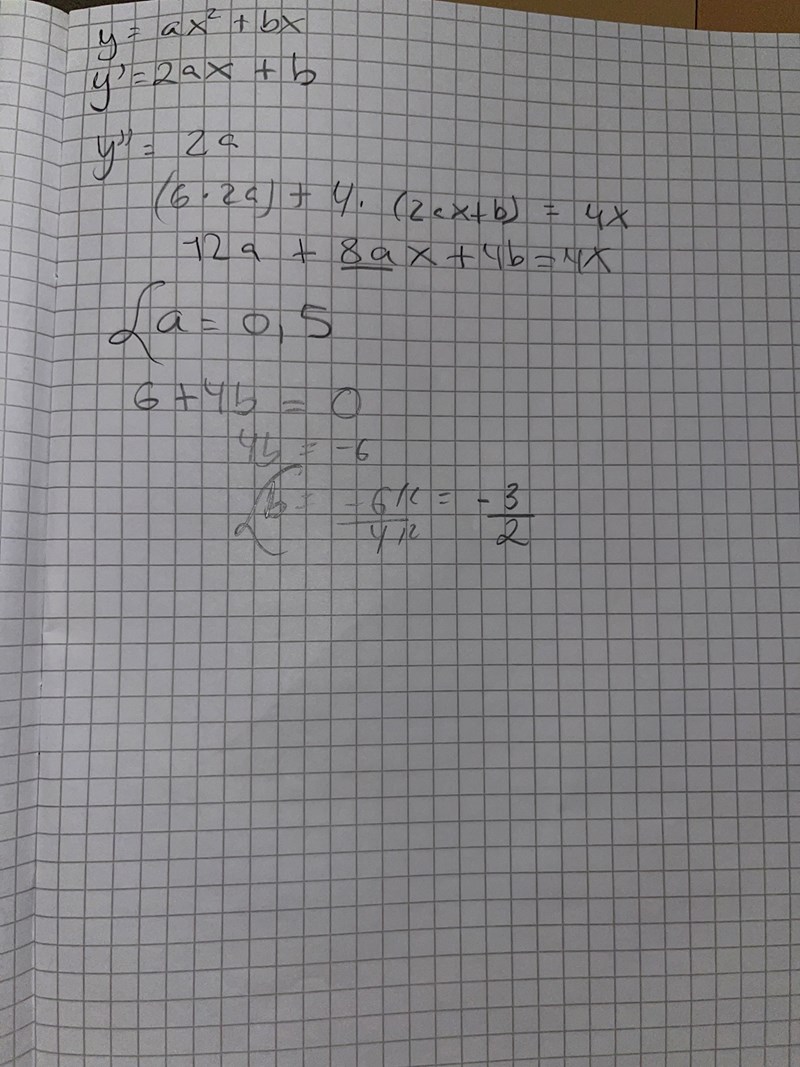 y = ax² + bx
y' = 2ax + b
y'' = 2a
(6 · 2a) + 4 · (2ax+b) = 4x
12a + 8ax + 4b = 4x
a = 0,5
6 + 4b = 0
4b = -6
b = -6/2 / 4/2 = -3/2